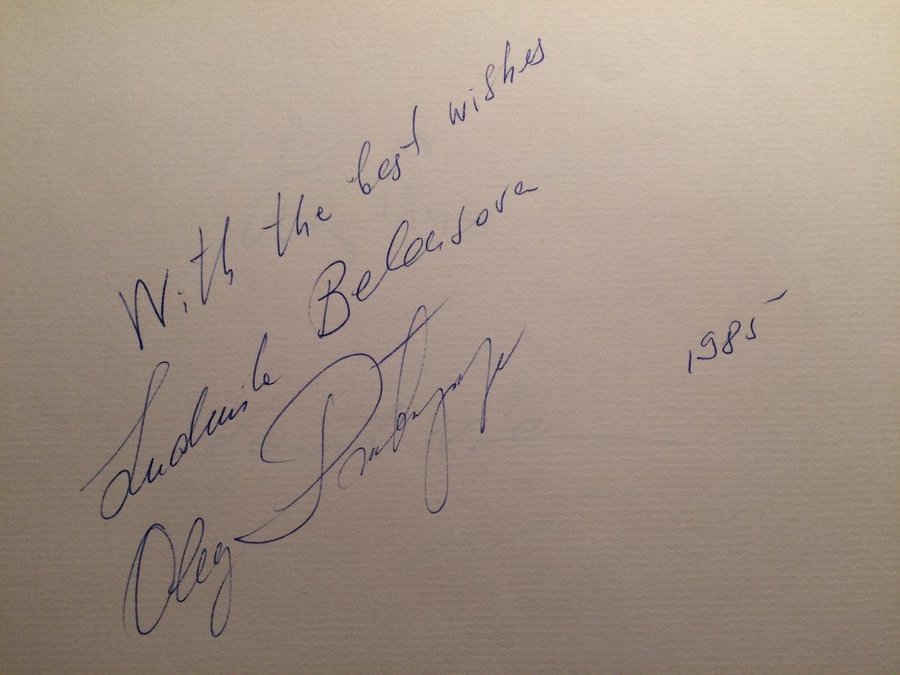 With the best wishes
Ludmila Belousova
Oleg
1985